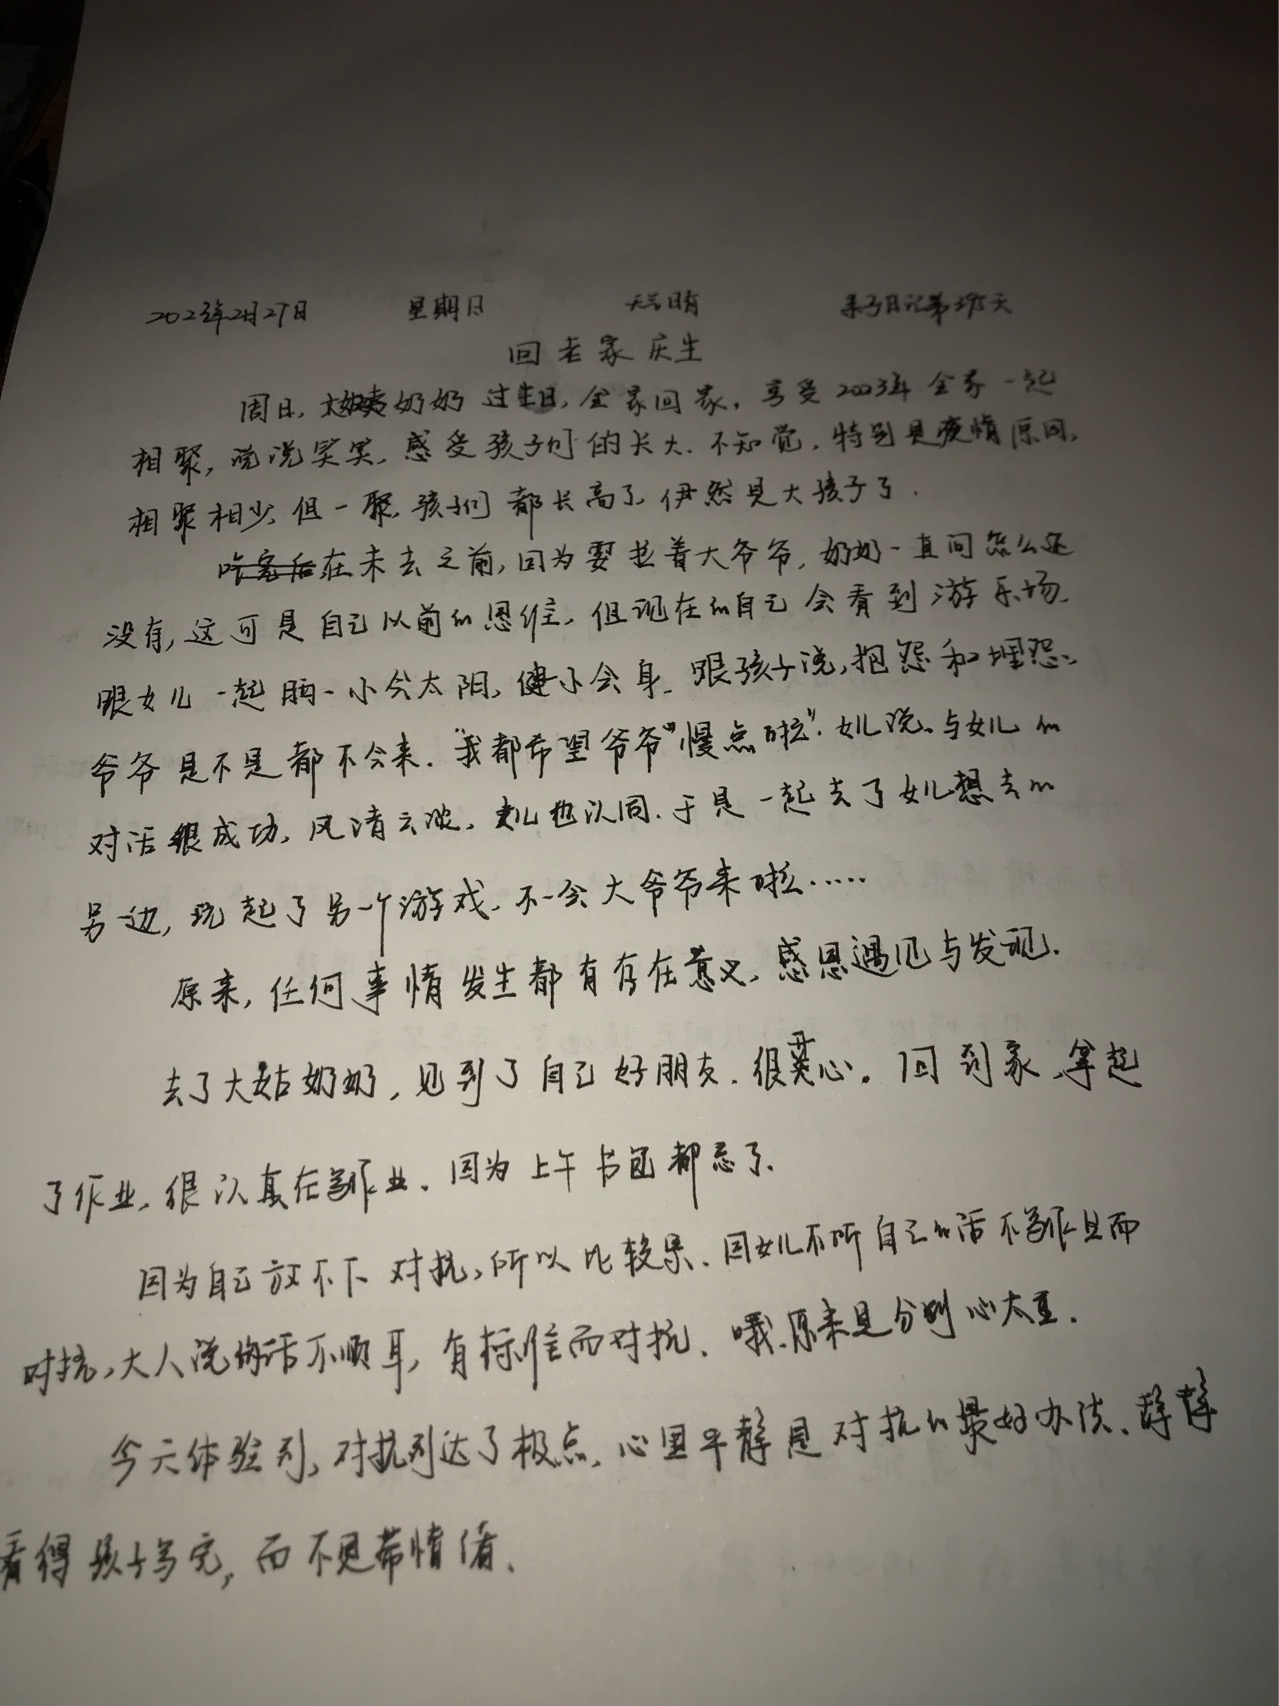 2023年2月27日 星期日 天气晴 亲子日记第395天
回老家庆生
周日,奶奶过生日,全家回家,享受2023年全家一起
相聚,说说笑笑,感受孩子们的长大.不知觉,特别是疫情原因,
相聚相少,但一聚,孩子们都长高了,伊然是大孩子了.
在未去之前,因为要拉着大爷爷,奶奶一直问怎么还
没有,这可是自己以前的思维,但现在的自己会看到游乐场,
跟女儿一起晒一小会太阳,健小会身.跟孩子说,抱怨和埋怨,
爷爷是不是都不会来."我都希望爷爷"慢点啦".女儿说.与女儿的
对话很成功,风清云淡,女儿也认同.于是一起去了女儿想去的
另一边,玩起了另一个游戏.不一会大爷爷来啦……
原来,任何事情发生都有存在意义,感恩遇见与发现.
去了大姑奶奶,见到了自己好朋友.很开心。回到家,拿起
了作业,很认真在写作业.因为上午书包都忘了.
因为自己放不下对抗,所以比较累.因女儿不听自己的话不写作业而
对抗,大人说的话不顺耳,有标准而对抗.哦,原来是分别心太重.
今天体验到,对抗到达了极点,心里平静是对抗的最好办法,静静
看得孩子写完,而不是带情绪.